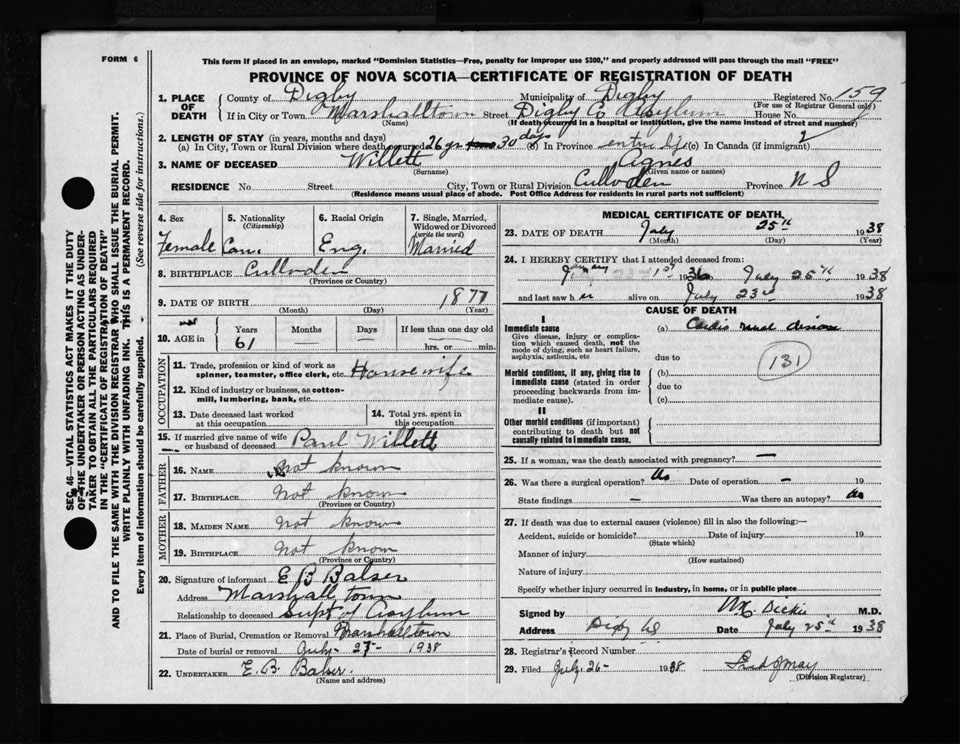 FORM 6
This form if placed in an envelope, marked "Dominion Statistics—Free, penalty for improper use $300," and properly addressed will pass through the mail "FREE"
PROVINCE OF NOVA SCOTIA—CERTIFICATE OF REGISTRATION OF DEATH
SEC. 46—VITAL STATISTICS ACT MAKES IT THE DUTY
OF THE UNDERTAKER OR PERSON ACTING AS UNDER-
TAKER TO OBTAIN ALL THE PARTICULARS REQUIRED
IN THE "CERTIFICATE OF REGISTRATION OF DEATH"
AND TO FILE THE SAME WITH THE DIVISION REGISTRAR WHO SHALL ISSUE THE BURIAL PERMIT.
WRITE PLAINLY WITH UNFADING INK. THIS IS A PERMANENT RECORD.
Every item of information should be carefully supplied. - (See reverse side for instructions.)
1. PLACE OF DEATH
County of Digby Municipality of Digby Registered No. 159
(For use of Registrar General only)
If in City or Town Marshalltown Street Digby Co Asylum House No.
(Name) (If death occurred in a hospital or institution, give the name instead of street and number)
2. LENGTH OF STAY (in years, months and days)
(a) In City, Town or Rural Division where death occurred 26 yrs 30 days (b) In Province entire life (c) In Canada (if immigrant)
3. NAME OF DECEASED Willett Agnes
(Surname) (Given name or names)
RESIDENCE No. Street City, Town or Rural Division Culloden Province N S
(Residence means usual place of abode. Post Office Address for residents in rural parts not sufficient)
4. Sex Female
5. Nationality (Citizenship) Can.
6. Racial Origin Eng.
7. Single, Married, Widowed or Divorced (write the word) Married
8. BIRTHPLACE Culloden
(Province or Country)
9. DATE OF BIRTH 1877
(Month) (Day) (Year)
10. AGE in Years 61 Months — Days — If less than one day old hrs. or min.
OCCUPATION
11. Trade, profession or kind of work as spinner, teamster, office clerk, etc. Housewife
12. Kind of industry or business, as cotton-mill, lumbering, bank, etc.
13. Date deceased last worked at this occupation
14. Total yrs. spent in this occupation
15. If married give name of wife or husband of deceased Paul Willett
FATHER
16. NAME Not known
17. BIRTHPLACE Not known
(Province or Country)
MOTHER
18. MAIDEN NAME Not know
19. BIRTHPLACE Not know
(Province or Country)
20. Signature of informant E B Balser
Address Marshalltown
Relationship to deceased Supt of Asylum
21. Place of Burial, Cremation or Removal Marshalltown
Date of burial or removal July 27 1938
22. UNDERTAKER E. B. Balser.
(Name and address)
MEDICAL CERTIFICATE OF DEATH
23. DATE OF DEATH July 25th 1938
(Month) (Day) (Year)
24. I HEREBY CERTIFY that I attended deceased from:
January 1st 1936 July 25th 1938
and last saw her alive on July 23rd 1938
CAUSE OF DEATH
I
Immediate cause
Give disease, injury or complication which caused death, not the mode of dying, such as heart failure, asphyxia, asthenia, etc
(a) Cardio renal disease
due to
131
Morbid conditions, if any, giving rise to immediate cause (stated in order proceeding backwards from immediate cause).
(b)
due to
(c)
II
Other morbid conditions (if important) contributing to death but not causally related to immediate cause.
25. If a woman, was the death associated with pregnancy? —
26. Was there a surgical operation? No Date of operation — 19
State findings — Was there an autopsy? No
27. If death was due to external causes (violence) fill in also the following:—
Accident, suicide or homicide? Date of injury 19
(State which)
Manner of injury
(How sustained)
Nature of injury
Specify whether injury occurred in industry, in home, or in public place
Signed by Dickie M.D.
Address Digby NS Date July 25th 1938
28. Registrar's Record Number
29. Filed July 26- 1938
(Division Registrar)